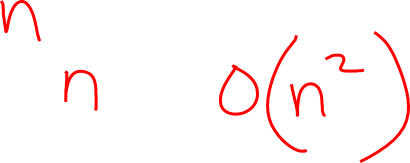 n
n O(n²)